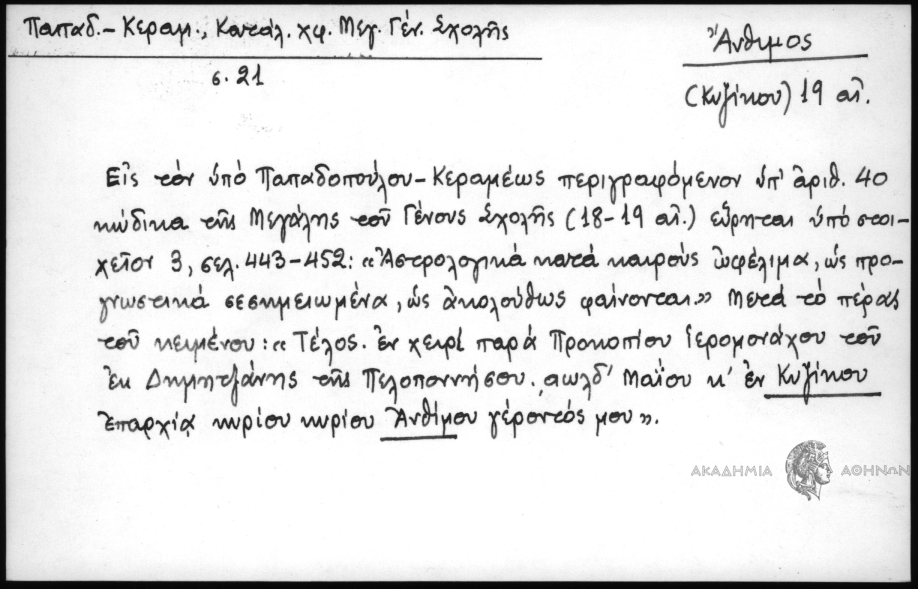 Παπαδ.-Κεραμ., Κατάλ. χφ. Μεγ. Γέν. Σχολῆς
σ. 21
Ἄνθιμος
(Κυζίκου) 19 αἰ.
Εἰς τὸν ὑπὸ Παπαδοπούλου-Κεραμέως περιγραφόμενον ὑπ' ἀριθ. 40
κώδικα τῆς Μεγάλης τοῦ Γένους Σχολῆς (18-19 αἰ.) εὕρηται ὑπὸ στοι-
χεῖον 3, σελ. 443-452: «Ἀστρολογικὰ κατὰ καιροὺς ὠφέλιμα, ὡς προ-
γνωστικὰ σεσημειωμένα, ὡς ἀκολούθως φαίνονται.» Μετὰ τὸ πέρας
τοῦ κειμένου: «Τέλος. ἐν χειρὶ παρὰ Προκοπίου ἱερομονάχου τοῦ
ἐκ Δημητζάνης τῆς Πελοποννήσου. αωλδ' Μαΐου κ' ἐν Κυζίκου
ἐπαρχίᾳ κυρίου κυρίου Ἀνθίμου γέροντός μου».
ΑΚΑΔΗΜΙΑ ΑΘΗΝΩΝ